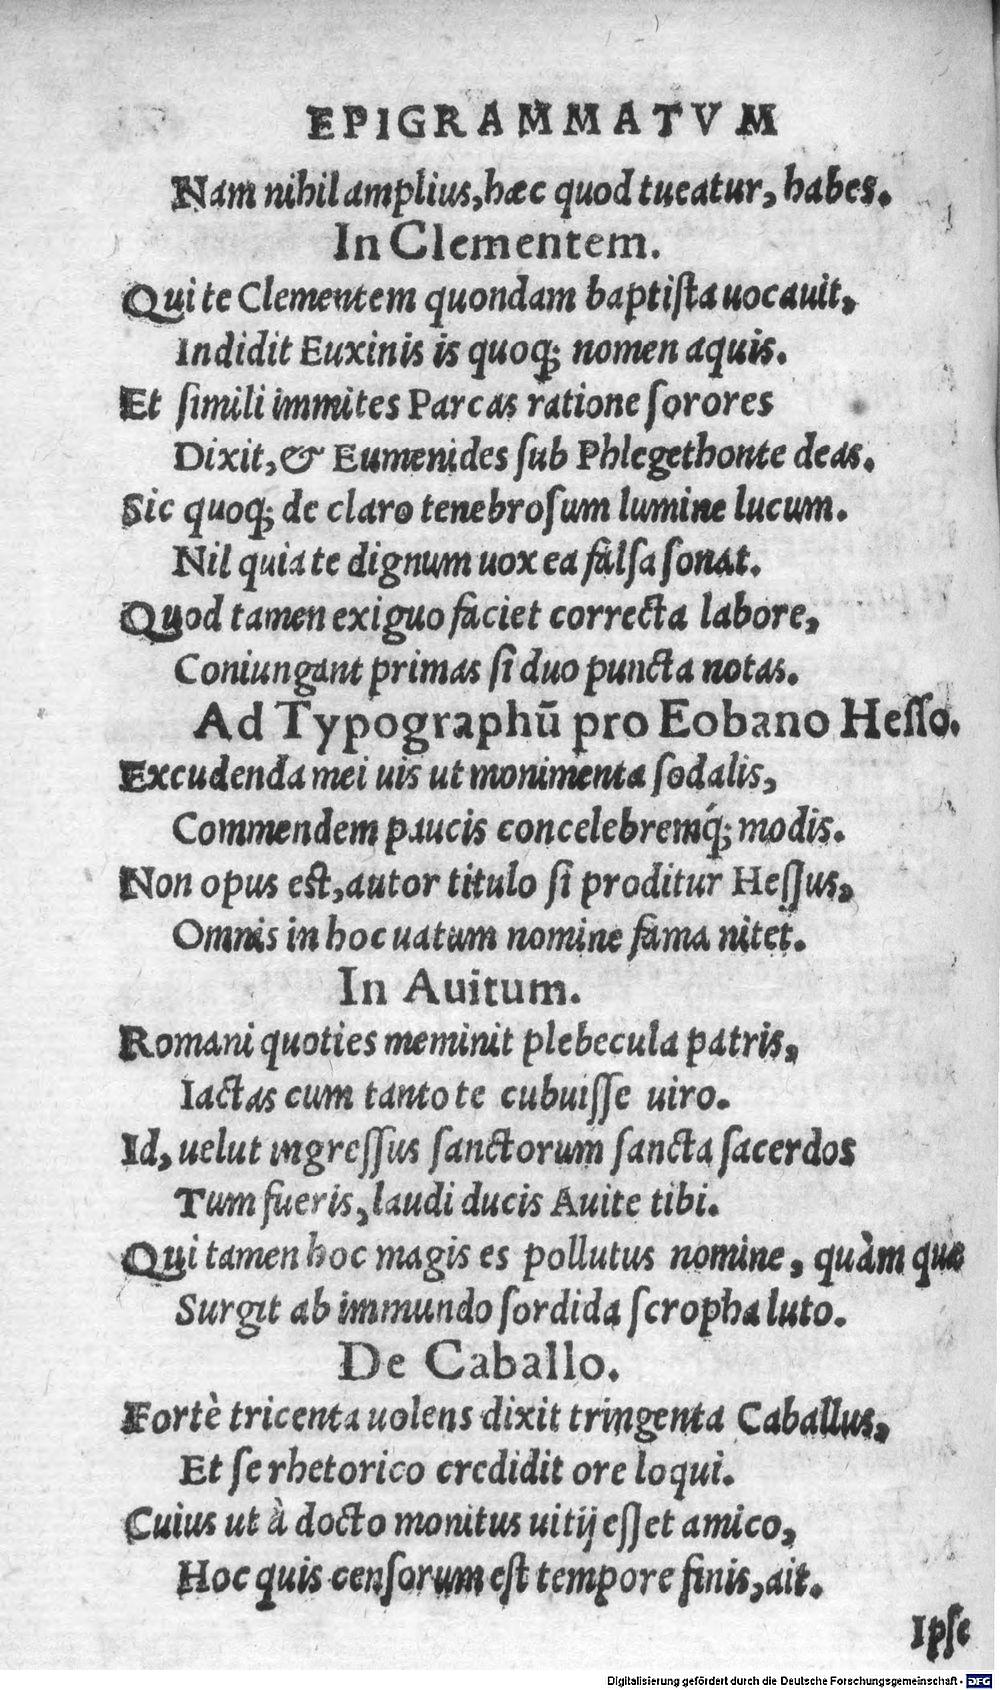 EPIGRAMMATVM
Nam nihil amplius, hæc quod tueatur, habes.
In Clementem.
Qui te Clementem quondam baptiſta uocauit,
Indidit Euxinis is quoq; nomen aquis.
Et ſimili immites Parcas ratione ſorores
Dixit, & Eumenides ſub Phlegethonte deas.
Sic quoq; de claro tenebroſum lumine lucum.
Nil quia te dignum uox ea falſa ſonat.
Quod tamen exiguo faciet correcta labore,
Coniungant primas ſi duo puncta notas.
Ad Typographū pro Eobano Heſſo.
Excudenda mei uis ut monimenta ſodalis,
Commendem paucis concelebremq́; modis.
Non opus eſt, autor titulo ſi proditur Heſſus,
Omnis in hoc uatum nomine fama nitet.
In Auitum.
Romani quoties meminit plebecula patris,
Iactas cum tanto te cubuiſſe uiro.
Id, uelut ingreſſus ſanctorum ſancta ſacerdos
Tum fueris, laudi ducis Auite tibi.
Qui tamen hoc magis es pollutus nomine, quàm quæ
Surgit ab immundo ſordida ſcropha luto.
De Caballo.
Fortè tricenta uolens dixit tringenta Caballus,
Et ſe rhetorico credidit ore loqui.
Cuius ut à docto monitus uitij eſſet amico,
Hoc quis cenſorum eſt tempore finis, ait.
Ipſe
Digitalisierung gefördert durch die Deutsche Forschungsgemeinschaft - DFG